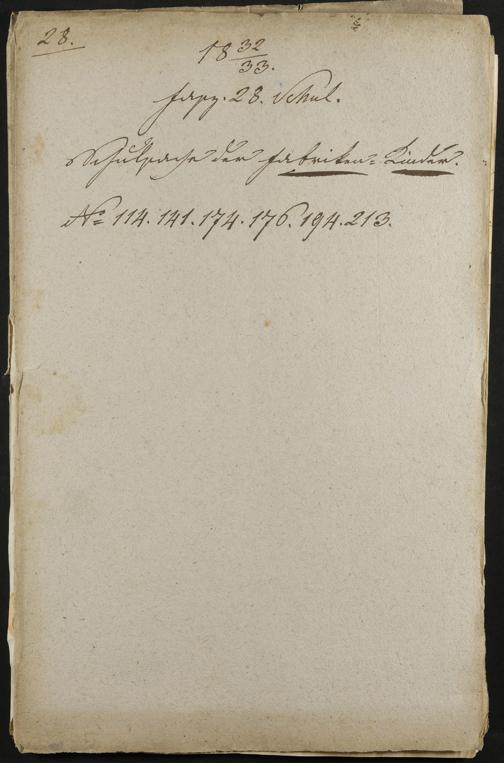 28.
18 32/33.
Fasz. 28. Schul.
Schulsache der Fabriken=Kinder.
No 114. 141. 174. 176. 194. 213.